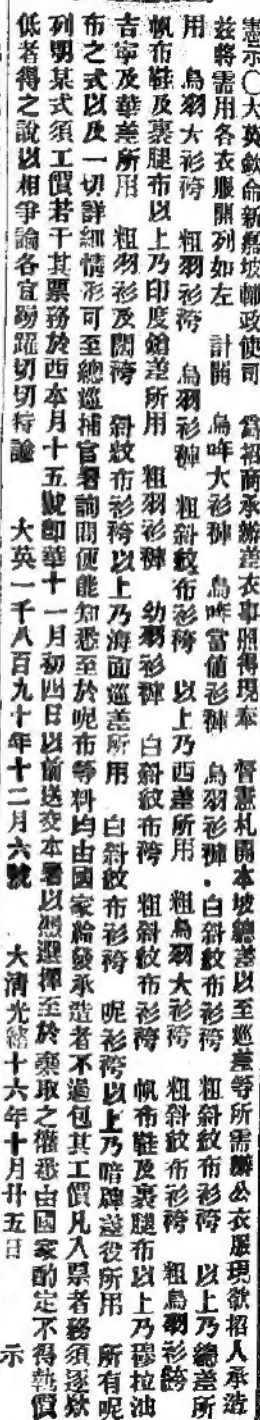 憲示〇大英欽命新嘉坡輔政使司　為招商承辦差衣事照得現奉　督憲札開本坡總差以至巡差等所需辦公衣服現欲招人承造
茲將需用各衣服開列如左　計開　烏哔大衫褲　烏哔當值衫褲　烏羽衫褲・白斜紋布衫袴　粗斜紋布衫袴　以上乃總差所
用　烏羽大衫袴　粗羽衫袴　烏羽衫褲　粗斜紋布衫袴　以上乃西差所用　粗烏羽大衫袴　粗斜紋布衫袴　粗烏羽衫袴
帆布鞋及裹腿布以上乃印度鎗差所用　粗羽衫褲　幼羽衫褲　白斜紋布袴　粗斜紋布衫袴　帆布鞋及裹腿布以上乃穆拉油
吉寧及華差所用　粗羽衫及闊袴　斜紋布衫袴以上乃海面巡差所用　白斜紋布衫袴　呢衫袴以上乃暗牌差役所用　所有呢
布之式以及一切詳細情形可至總巡捕官署詢問便能知悉至於呢布等料均由國家給發承造者不過包其工價凡入票者務須逐欵
列明某式須工價若干其票務於西本月十五號即華十一月初四日以前送交本署以憑選擇至於棄取之權悉由國家酌定不得執價
低者得之說以相爭論各宜踴躍切切特諭　大英一千八百九十年十二月六號　大清光緒十六年十月廿五日　示